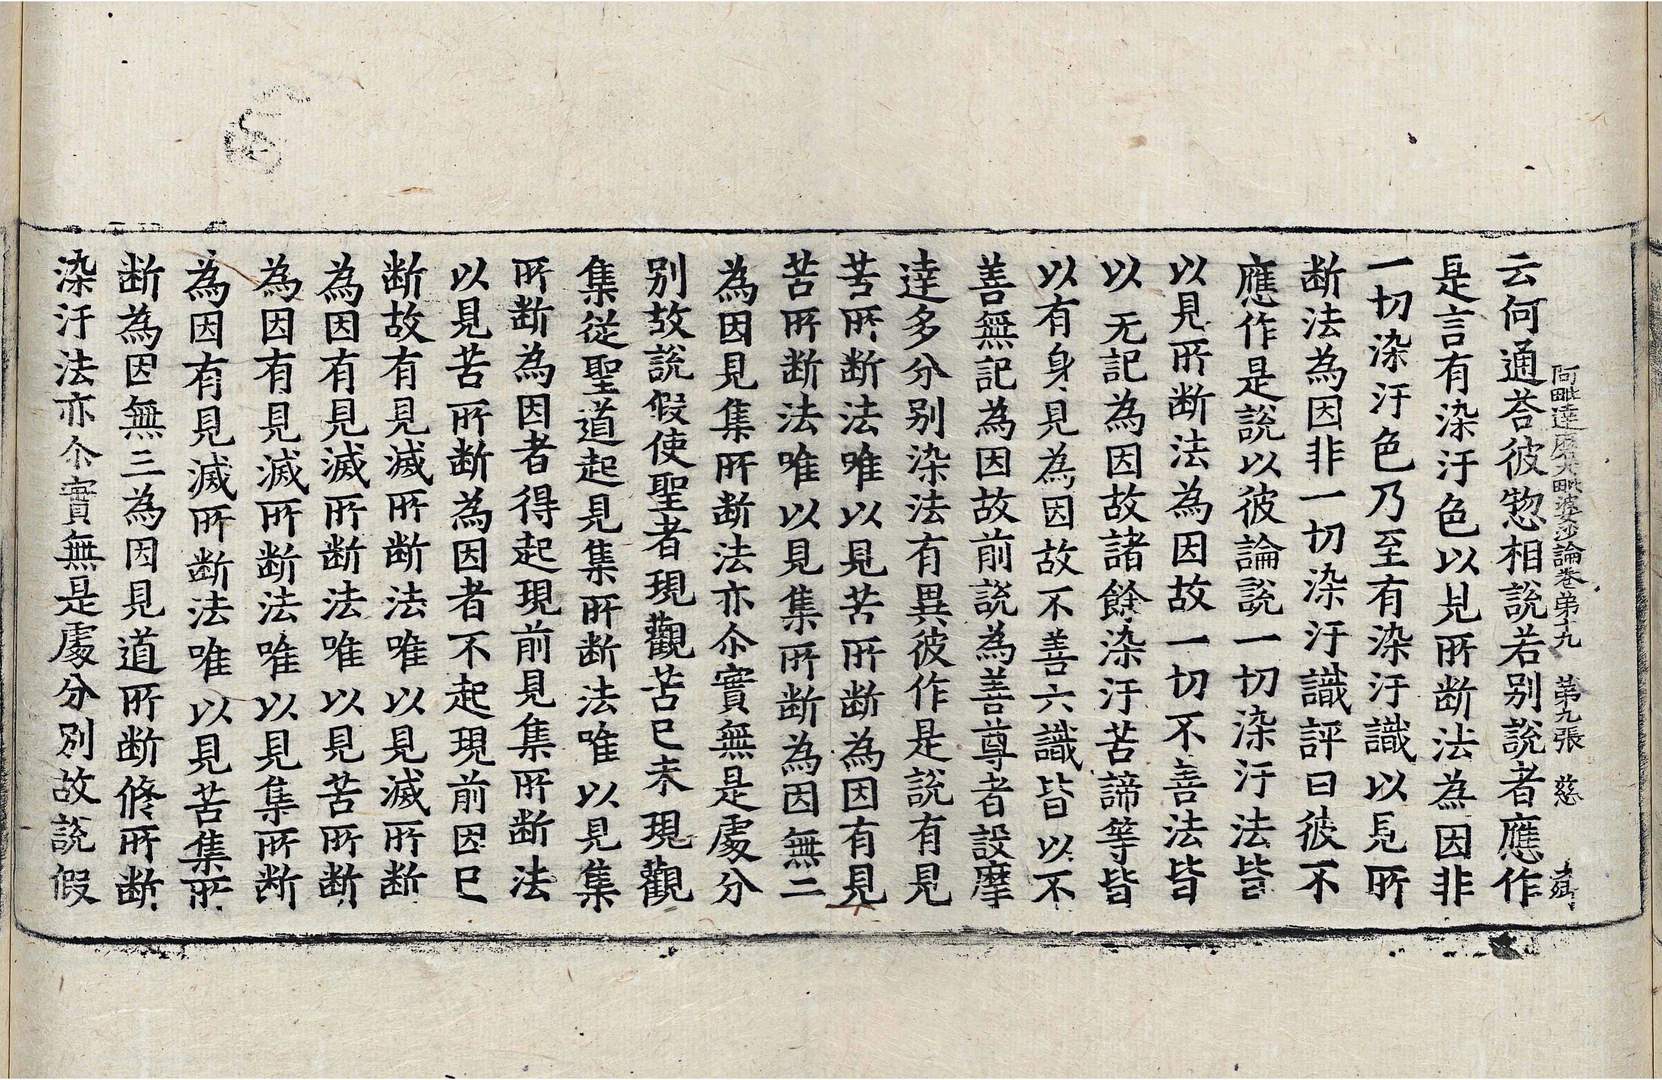 阿毗達磨大毗婆沙論卷第十九 第九張 慈
云何通荅彼惣相說若别說者應作
是言有染汙色以見所断法為因非
一切染汙色乃至有染汙識以見所
断法為因非一切染汙識評曰彼不
應作是說以彼論說一切染汙法皆
以見所断法為因故一切不善法皆
以无記為因故諸餘染汙苦諦等皆
以有身見為因故不善六識皆以不
善無記為因故前說為善尊者設摩
達多分别染法有異彼作是說有見
苦所断法唯以見苦所断為因有見
苦所断法唯以見集所断為因無二
為因見集所断法亦尒實無是處分
别故說假使聖者現觀苦已未現觀
集從聖道起見集所断法唯以見集
所断為因者得起現前見集所断法
以見苦所断為因者不起現前因已
断故有見滅所断法唯以見滅所断
為因有見滅所断法唯以見苦所断
為因有見滅所断法唯以見集所断
為因有見滅所断法唯以見苦集所
断為因無三為因見道所断修所断
染汙法亦尒實無是處分别故說假